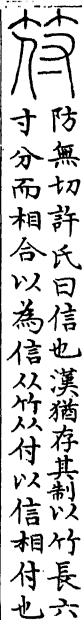 符
防無切許氏曰信也漢猶存其制以竹長六
寸分而相合以為信从竹从付以信相付也